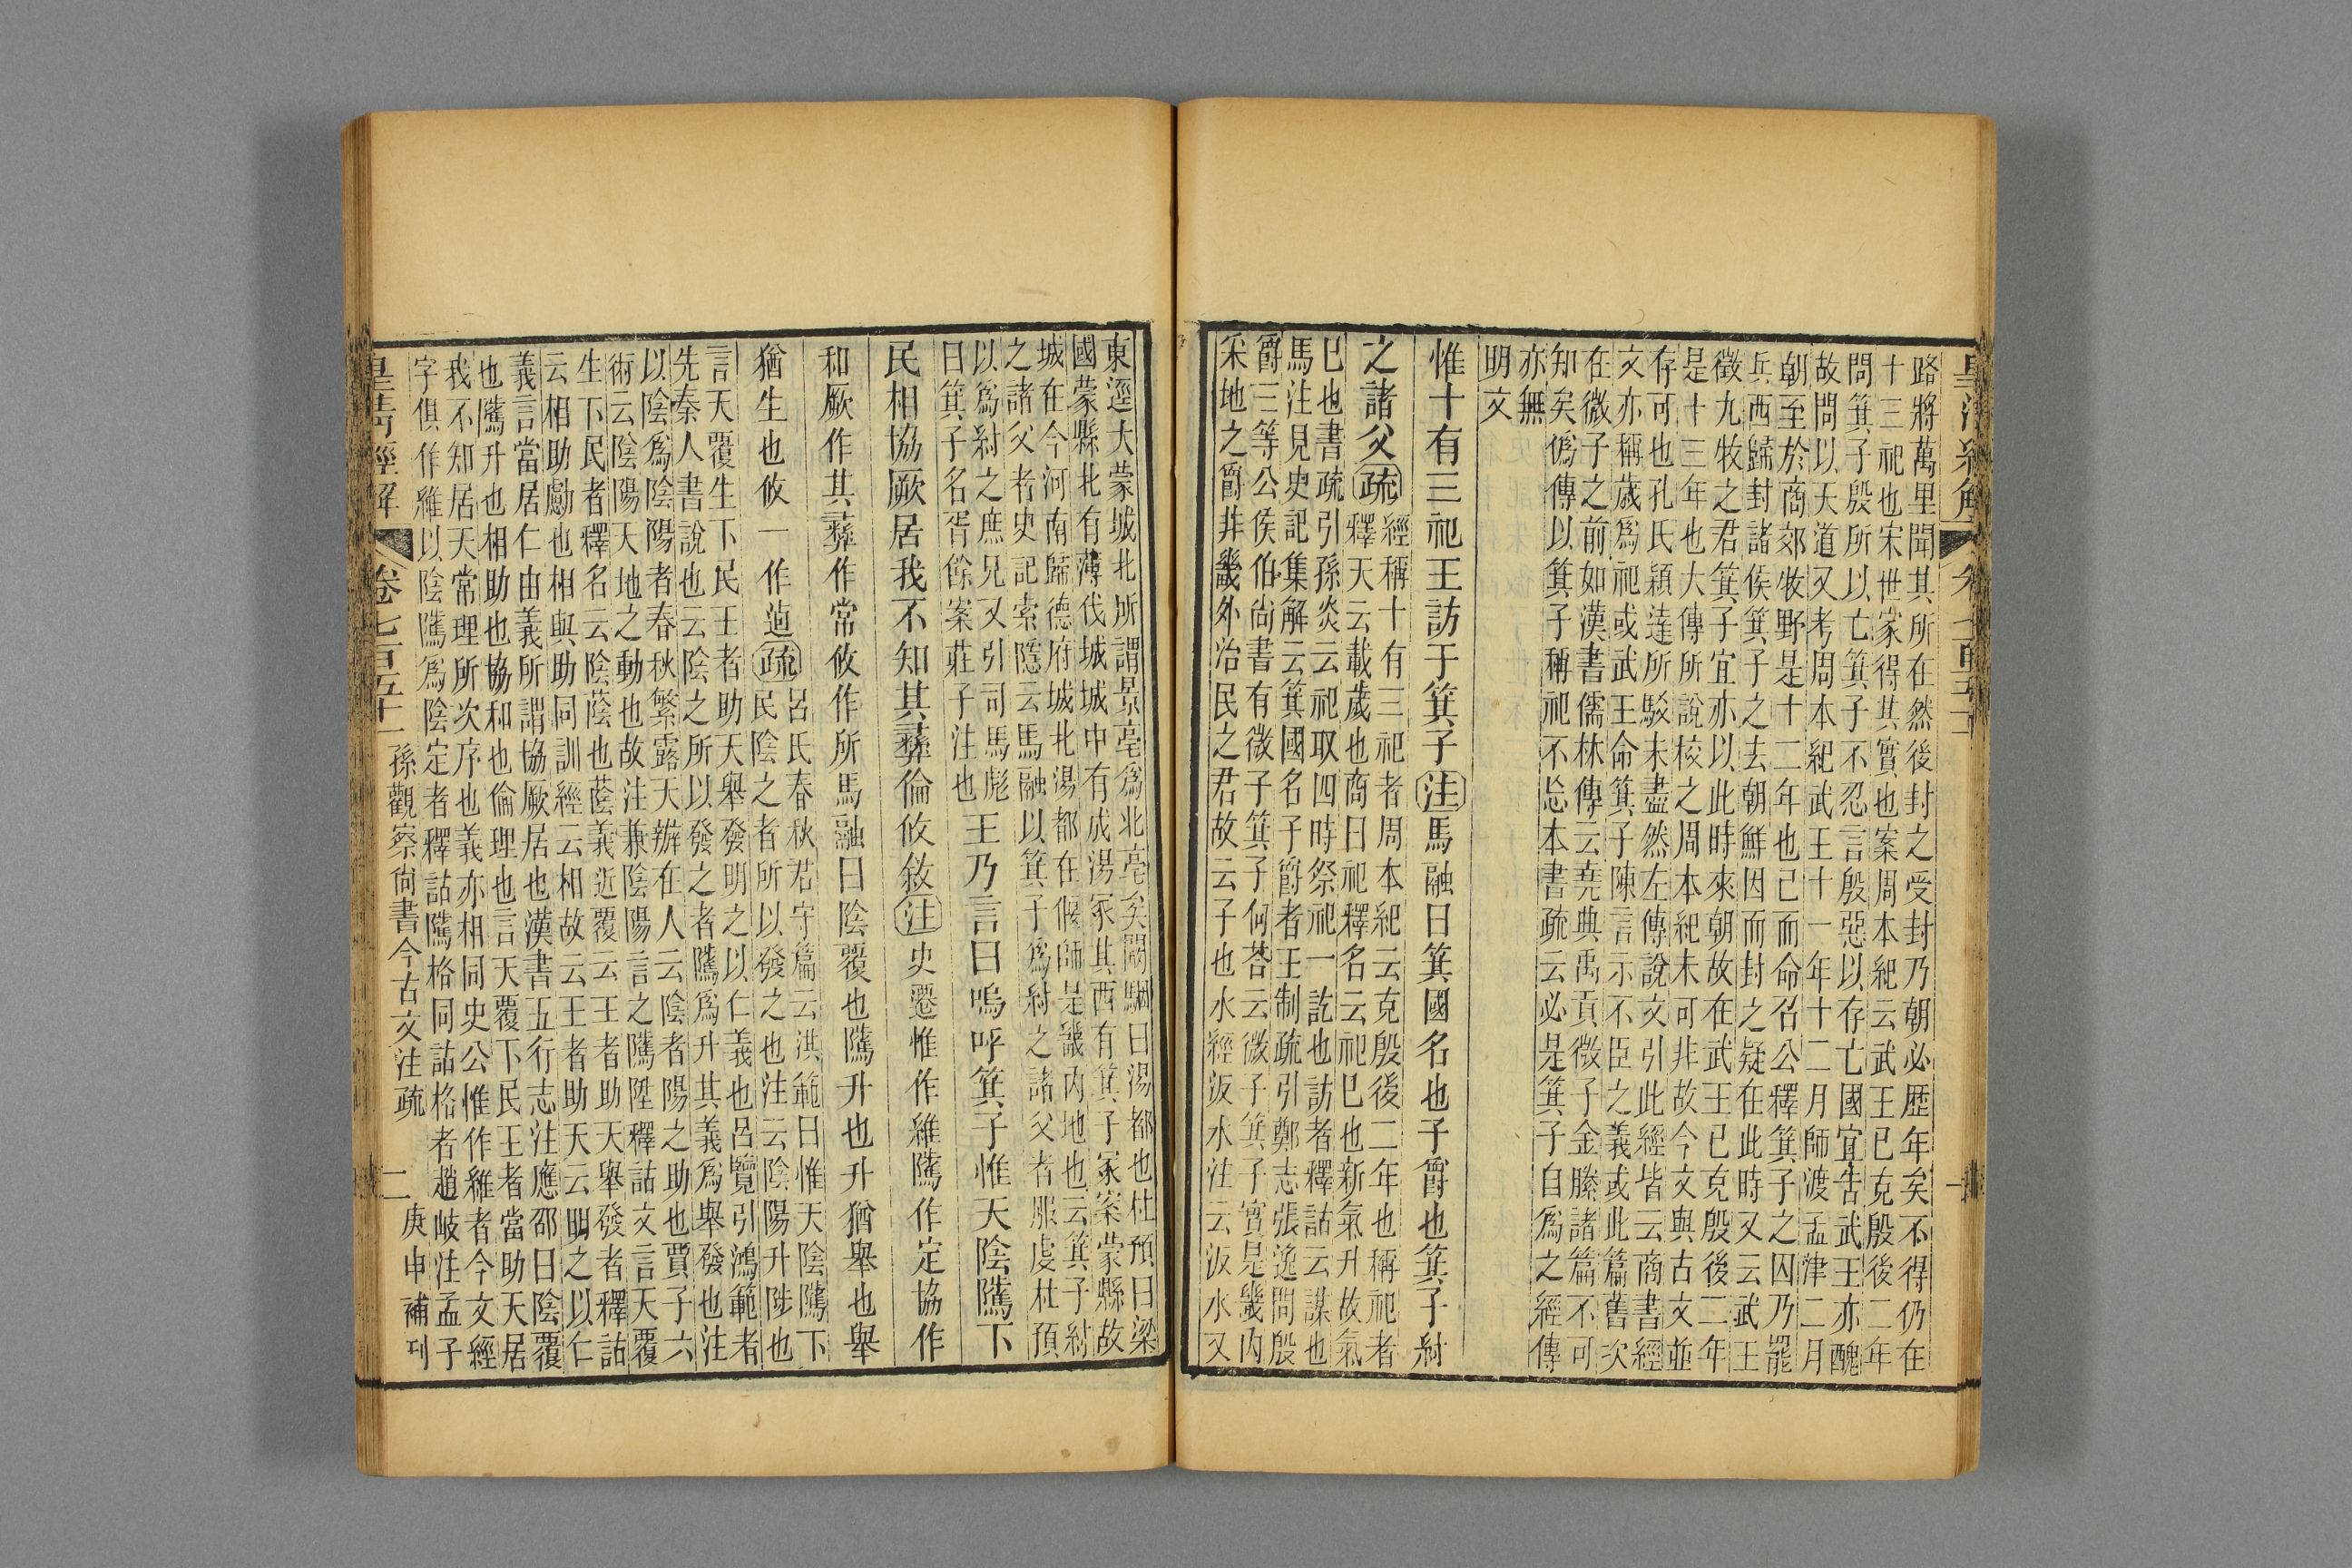 皇清經解 卷七百五十一
路將萬里聞其所在然後封之受封乃朝必歷年矣不得仍在
十三祀也宋世家得其實也案周本紀云武王已克殷後二年
問箕子殷所以亡箕子不忍言殷惡以存亡國宜告武王亦醜
故問以天道又考周本紀武王十一年十二月師渡孟津二月
朝至於商郊牧野是十二年也已而命召公釋箕子之囚乃罷
兵西歸封諸侯箕子之去朝鮮因而封之疑在此時又云武王
徵九牧之君箕子宜亦以此時來朝故在武王已克殷後二年
是十三年也大傳所說校之周本紀未可非故今文與古文並
存可也孔氏穎達所駁未盡然左傳說文引此經皆云商書經
文亦稱歲爲祀或武王命箕子陳言示不臣之義或此篇舊次
在微子之前如漢書儒林傳云堯典禹貢微子金縢諸篇不可
知矣僞傳以箕子稱祀不忘本書疏云必是箕子自爲之經傳
亦無
明文
惟十有三祀王訪于箕子注馬融曰箕國名也子爵也箕子紂
之諸父疏經稱十有三祀者周本紀云克殷後二年也稱祀者
釋天云載歲也商曰祀釋名云祀巳也新氣升故氣
巳也書疏引孫炎云祀取四時祭祀一訖也訪者釋詁云謀也
馬注見史記集解云箕國名子爵者王制疏引鄭志張逸問殷
爵三等公侯伯尚書有微子箕子何荅云微子箕子實是畿內
采地之爵非畿外治民之君故云子也水經汳水注云汳水又
東逕大蒙城北所謂景亳爲北亳矣闞駰曰湯都也杜預曰梁
國蒙縣北有薄伐城城中有成湯冢其西有箕子冢案蒙縣故
城在今河南歸德府城北湯都在偃師是畿內地也云箕子紂
之諸父者史記索隱云馬融以箕子爲紂之諸父者服虔杜預
以爲紂之庶兄又引司馬彪
曰箕子名胥餘案莊子注也
王乃言曰嗚呼箕子惟天陰隲下
民相協厥居我不知其彝倫攸敘注史遷惟作維隲作定協作
和厥作其彝作常攸作所馬融曰陰覆也隲升也升猶舉也舉
猶生也攸一作逌疏呂氏春秋君守篇云洪範曰惟天陰隲下
民陰之者所以發之也注云陰陽升陟也
言天覆生下民王者助天舉發明之以仁義也呂覽引鴻範者
先秦人書說也云陰之所以發之者隲爲升其義爲舉發也注
以陰爲陰陽者春秋繁露天辦在人云陰者陽之助也賈子六
術云陰陽天地之動也故注兼陰陽言之隲陞釋詁文言天覆
生下民者釋名云陰蔭也蔭義近覆云王者助天舉發者釋詁
云相助勴也相與助同訓經云相故云王者助天云明之以仁
義言當居仁由義所謂協厥居也漢書五行志注應邵曰陰覆
也隲升也相助也協和也倫理也言天覆下民王者當助天居
我不知居天常理所次序也義亦相同史公惟作維者今文經
字俱作維以陰隲爲陰定者釋詁隲格同詁格者趙岐注孟子
皇清經解 卷七百五十一 孫觀察尚書今古文注疏 二 庚申補刊